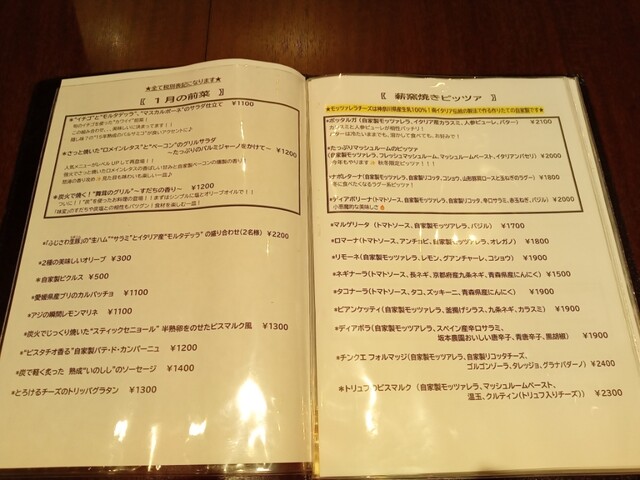 ★全て税別表記になります★
《 1月の前菜 》
*“イチゴ”と“モルタデッラ”、“マスカルポーネ”のサラダ仕立て ¥1100
旬のイチゴを使った“カワイイ”前菜！
この組み合せ、、、美味しいに決まってます！！
*さっと焼いた“ロメインレタス”と“ベーコン”のグリルサラダ
～たっぷりのパルミジャーノをかけて～ ¥1200
*炭火で焼く！“舞茸のグリル”～すだちの香り～ ¥1200
ついに！！“炭”を使ったお料理の登場！！まずはシンプルに塩とオリーブオイルで！！
*“ふじさわ生豚”の“生ハム”“サラミ”とイタリア産“モルタデッラ” の盛り合わせ(2名様) ¥2200
*2種の美味しいオリーブ ¥300
*自家製ピクルス ¥500
*愛媛県産ブリのカルパッチョ ¥1100
*アジの瞬間レモンマリネ ¥1100
*炭火でじっくり焼いた“スティックセニョール” 半熟卵をのせたビスマルク風 ¥1300
*“ピスタチオ香る”自家製パテ・ド・カンパーニュ ¥1200
*炭で軽く炙った 熟成“いのしし”のソーセージ ¥1400
*とろけるチーズのトリッパグラタン ¥1300
《 薪窯焼きピッツァ 》
★モッツァレラチーズは神奈川県産生乳100％！南イタリア伝統の製法で作る作りたての自家製です★
*ボッタルガ（自家製モッツァレラ、イタリア産カラスミ、人参ピューレ、バター） ¥2100
カラスミと人参ピューレが相性バッチリ！
バターは混ぜたいまでも、溶かして食べても、お好みで！
*たっぷりマッシュルームのピッツァ
(自家製モッツァレラ、フレッシュマッシュルーム、マッシュルームペースト、イタリアンパセリ) ¥2000
今年もやります 秋冬限定ピッツァ！！
*ナポレターナ(自家製モッツァレラ、自家製リコッタ、コショウ、山形豚肩ロースと玉ねぎのラグー) ¥1800
冬に食べたくなるラグー系ピッツァ！
*ディアボリーナ(トマトソース、自家製モッツァレラ、自家製リコッタ、辛口サラミ、赤玉ねぎ、バジル) ¥2000
小悪魔的な美味しさ
*マルゲリータ（トマトソース、自家製モッツァレラ、バジル） ¥1700
*ロマーナ(トマトソース、アンチョビ、自家製モッツァレラ、オレガノ) ¥1800
*リモーネ(自家製モッツァレラ、レモン、グアンチャーレ、コショウ) ¥1900
*ネギナーラ(トマトソース、長ネギ、京都府産九条ネギ、青森県産にんにく) ¥1500
*タコナーラ(トマトソース、タコ、ズッキーニ、青森県産にんにく) ¥1900
*ビアンケッティ(自家製モッツァレラ、釜揚げシラス、九条ネギ、カラスミ) ¥1900
*ディアボラ(自家製モッツァレラ、スペイン産辛口サラミ、
坂本農園おいしい唐辛子、青唐辛子、黒胡椒) ¥1900
*チンクエ フォルマッジ(自家製モッツァレラ、自家製リコッタチーズ、
ゴルゴンゾーラ、タレッジョ、グラナパダーノ) ¥2400
*トリュフのビスマルク（自家製モッツァレラ、マッシュルームペースト、
温玉、クルティン(トリュフ入りチーズ)） ¥2300